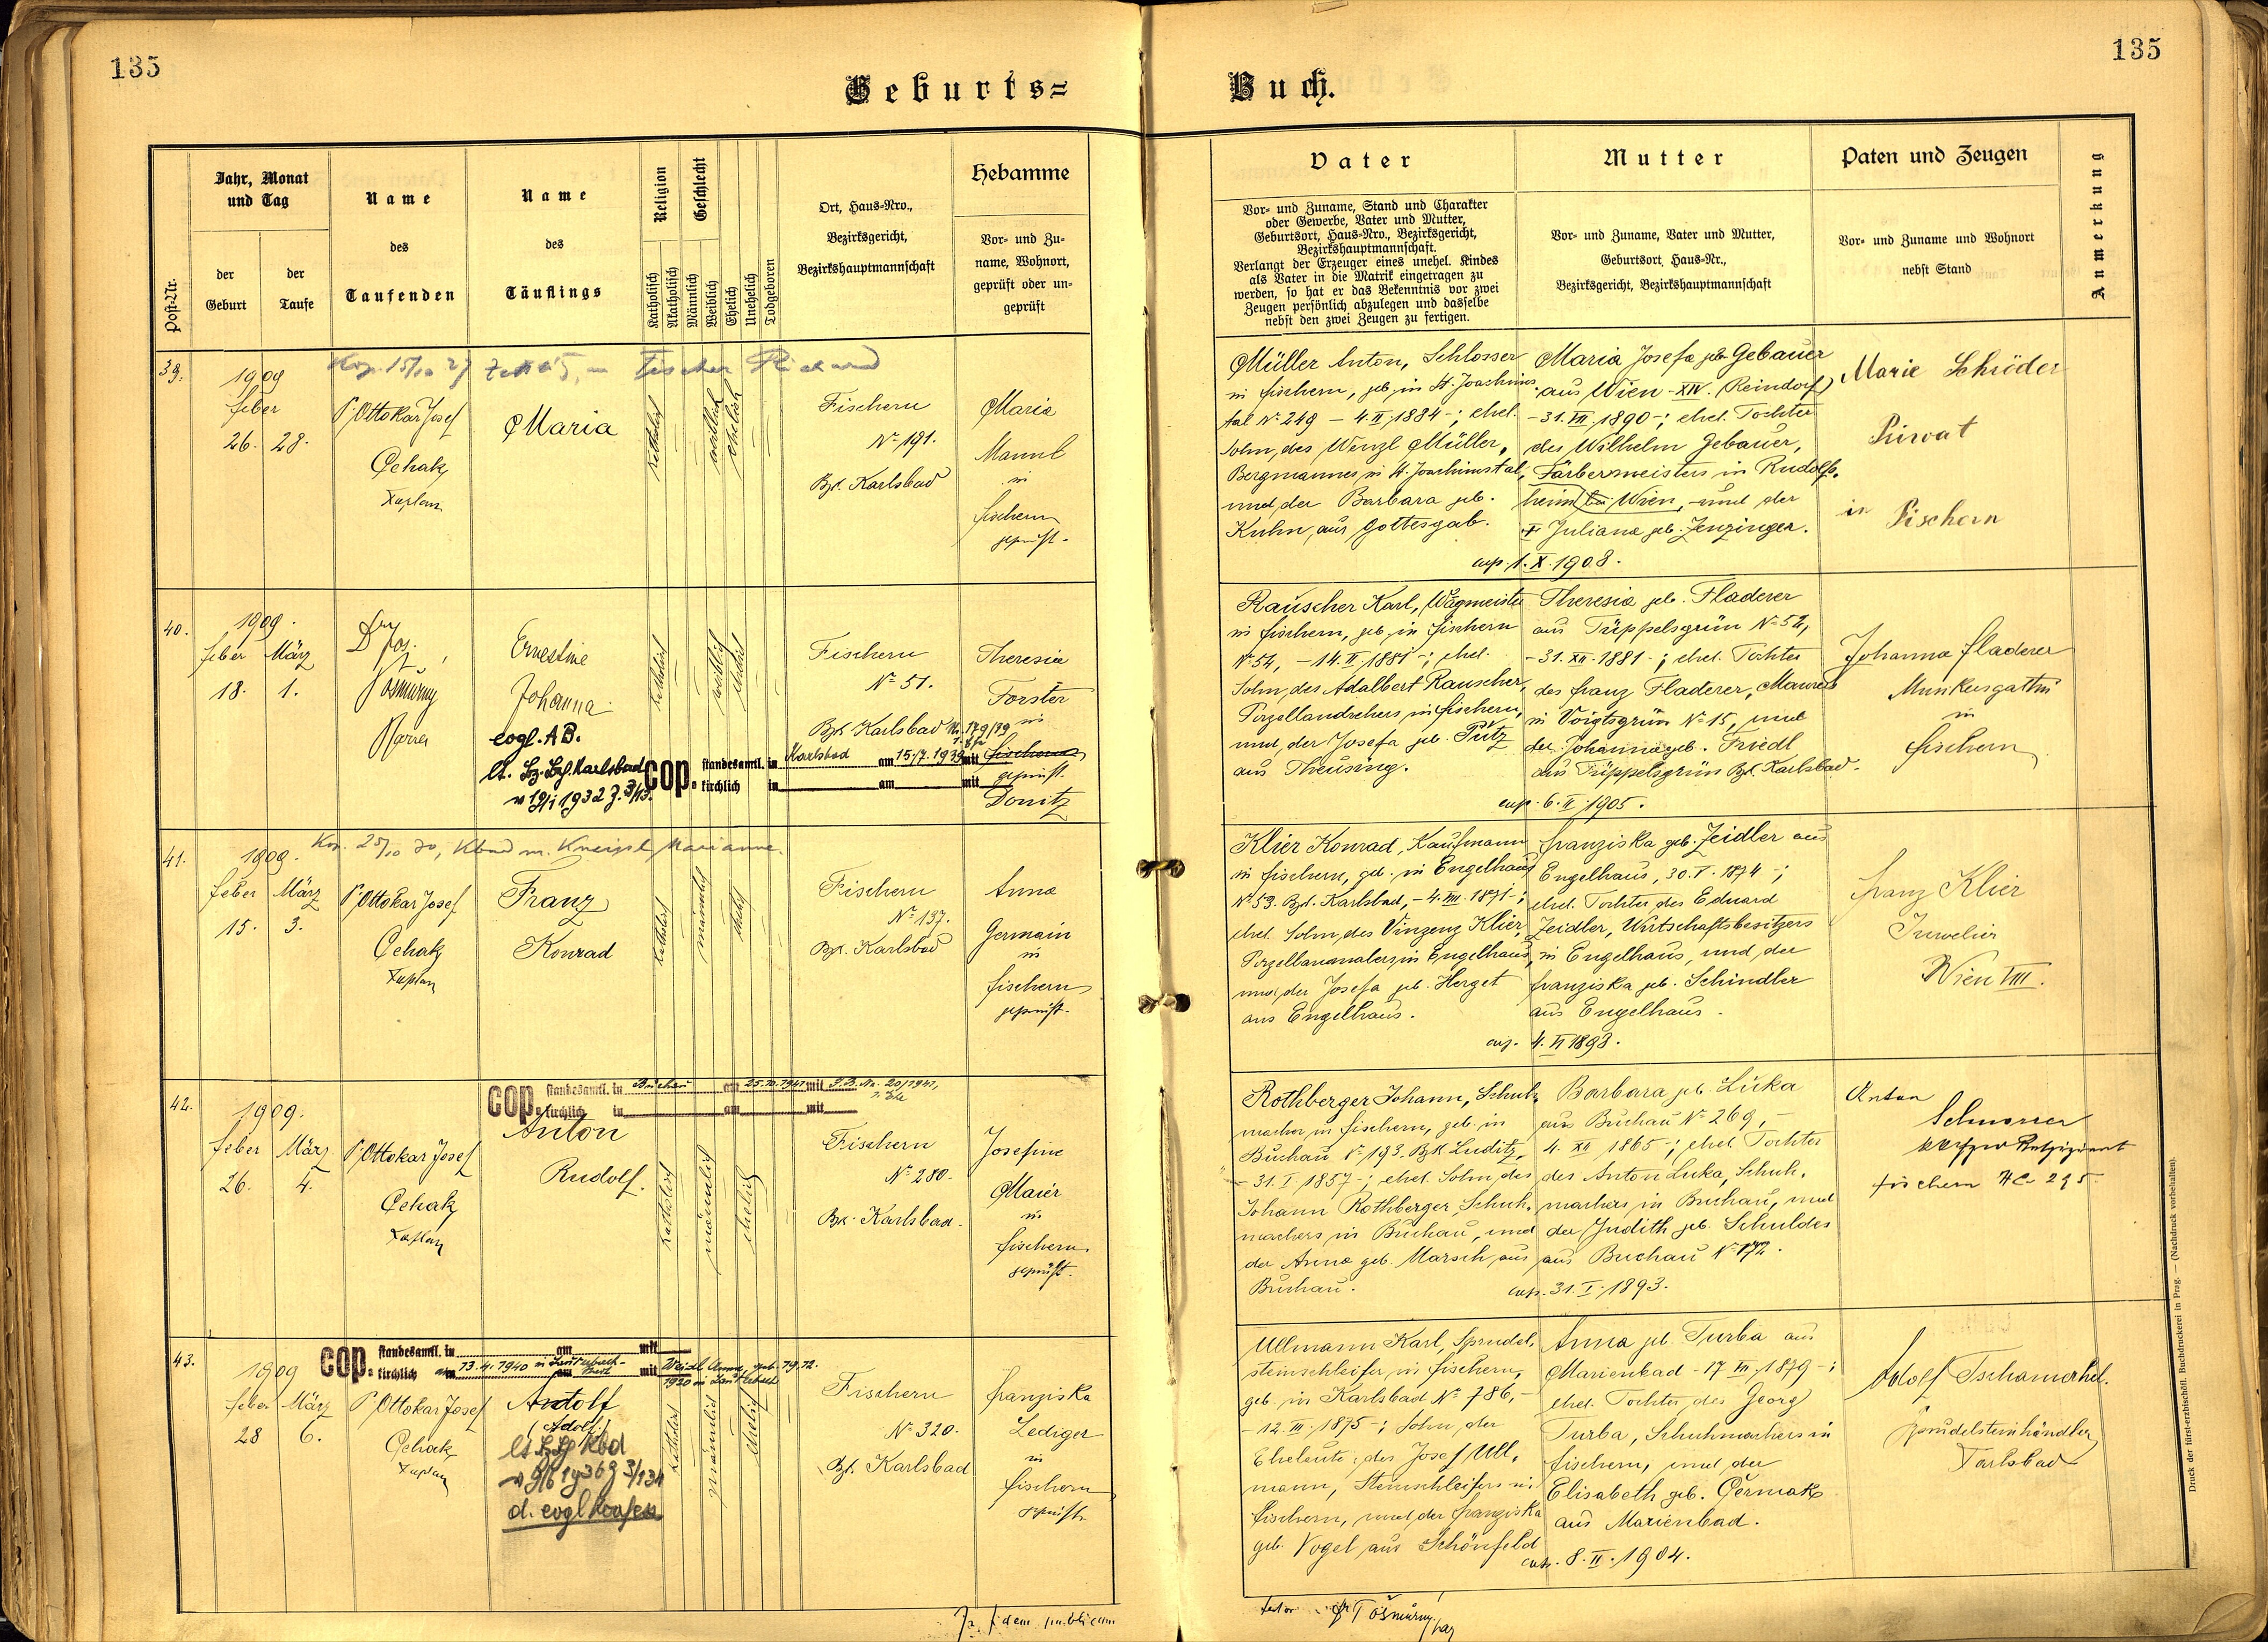 135
135
Geburts=
Buch.
Post-Nr.
Jahr, Monat
und Tag
der
Geburt
der
Taufe
Name
des
Taufenden
Name
des
Täuflings
Religion
Katholisch
Akatholisch
Geschlecht
Männlich
Weiblich
Ehelich
Unehelich
Todgeboren
Ort, Haus-Nro.,
Bezirksgericht,
Bezirkshauptmannschaft
Hebamme
Vor- und Zu-
name, Wohnort,
geprüft oder un-
geprüft
Vater
Vor- und Zuname, Stand und Charakter
oder Gewerbe, Vater und Mutter,
Geburtsort, Haus-Nro., Bezirksgericht,
Bezirkshauptmannschaft.
Verlangt der Erzeuger eines unehel. Kindes
als Vater in die Matrik eingetragen zu
werden, so hat er das Bekenntnis vor zwei
Zeugen persönlich abzulegen und dasselbe
nebst den zwei Zeugen zu fertigen.
Mutter
Vor- und Zuname, Vater und Mutter,
Geburtsort, Haus-Nr.,
Bezirksgericht, Bezirkshauptmannschaft
Paten und Zeugen
Vor- und Zuname und Wohnort
nebst Stand
Anmerkung
39.
Fischer Richard
1909
Feber
26. 28.
P. Ottokar Josef
Čehak
Kaplan
Maria
katholisch
weiblich
ehelich
Fischern
Nº 191.
Bzk. Karlsbad
Maria
Mannl
in
Fischern
geprüft.
Müller Anton, Schlosser
in Fischern, geb. in St. Joachims-
tal Nº 249 – 4. II. 1884 –; ehel.
Sohn des Wenzl Müller,
Bergmannes in St. Joachimstal,
und der Barbara geb.
Kuhn, aus Gottesgab.
Maria Josefa geb. Gebauer
aus Wien – XIV. (Reindorf)
– 31. VII. 1890 –; ehel. Tochter
des Wilhelm Gebauer,
Färbermeisters in Rudolfs-
heim bei Wien, und der
Juliana geb. Jenzinger.
cop. 1. X. 1908.
Marie Schröder
Privat
in Fischern
40.
1909.
Feber März
18. 1.
Dr. Jos.
Tošmůrny
Pfarrer
Ernestine
Johanna
evgl. A.B.
lt. Bz. Bzh. Karlsbad
v 19/I 1932 Z. 3/113.
katholisch
weiblich
ehelich
Fischern
Nº 51.
Bzk Karlsbad Nr. 179/39
cop. standesamtl. in Karlsbad am 15/7. 1939 mit
kirchlich in am mit
Theresia
Forster
in
Fischern
geprüft.
Donitz
Rauscher Karl, Wagmeister
in Fischern, geb. in Fischern
Nº 54, – 14. II. 1881 –; ehel.
Sohn des Adalbert Rauscher,
Porzellandrehers in Fischern,
und der Josefa geb. Pütz
aus Theusing.
Theresia geb. Fladerer
aus Tüppelsgrün Nº 52,
– 31. XII. 1881 –; ehel. Tochter
des Franz Fladerer, Maurers
in Voigtsgrün Nº 15, und
der Johanna geb. Friedl
aus Tüppelsgrün Bzk. Karlsbad.
cop. 6. II. 1905.
Johanna Fladerer
in
Fischern
41.
Kop. 25/10 30, Kbad m. Kneissl Marianne.
1909.
Feber März
15. 3.
P. Ottokar Josef
Čehak
Kaplan
Franz
Konrad
katholisch
männlich
ehelich
Fischern
Nº 137.
Bzk. Karlsbad
Anna
Germain
in
Fischern
geprüft.
Klier Konrad, Kaufmann
in Fischern, geb. in Engelhaus
Nº 53. Bzk. Karlsbad, – 4. VIII. 1871 –;
ehel. Sohn des Vinzenz Klier,
Porzellanmalers in Engelhaus,
und der Josefa geb. Herget
aus Engelhaus.
Franziska geb. Zeidler aus
Engelhaus, 30. V. 1874 –;
ehel. Tochter des Eduard
Zeidler, Wirtschaftsbesitzers
in Engelhaus, und der
Franziska geb. Schindler
aus Engelhaus.
cop. 4. VI 1898.
Franz Klier
Juwelier
Wien VIII.
42.
cop. standesamtl. in Buchau am 25.10.1941 mit
kirchlich in am mit
1909.
Feber März
26. 4.
P. Ottokar Josef
Čehak
Kaplan
Anton
Rudolf.
katholisch
männlich
ehelich
Fischern
Nº 280.
Bzk. Karlsbad.
Josefine
Maier
in
Fischern
geprüft.
Rothberger Johann, Schuh-
macher in Fischern, geb. in
Buchau Nº 193. Bzk Luditz,
– 31. I. 1857 –; ehel. Sohn des
Johann Rothberger, Schuh-
machers in Buchau, und
der Anna geb. Marsch, aus
Buchau.
Barbara geb. Luka
aus Buchau Nº 269, –
4. XII 1865 –; ehel. Tochter
des Anton Luka, Schuh-
machers in Buchau, und
der Judith geb. Schuldes
aus Buchau Nº 172.
cop. 31. I. 1893.
Anton
Fischern NC 295
43.
cop. standesamtl. in am mit
kirchlich am 13.4.1940 in Lauterbach- mit Weidl Anna, geb. 19.12.
1920 in Lauterbach
1909
Feber März
28 6.
P. Ottokar Josef
Čehak
Kaplan
Antolf
(Adolf.)
katholisch
männlich
ehelich
Fischern
Nº 320.
Bzk. Karlsbad
Franziska
Lediger
in
Fischern
geprüft.
Ullmann Karl, Sprudel-
steinschleifer in Fischern,
geb. in Karlsbad Nº 786, –
– 12. III. 1875 –; Sohn der
Eheleute: des Josef Ull-
mann, Steinschleifers in
Fischern, und der Franziska
geb. Vogel aus Schönfeld
Anna geb. Turba aus
Marienbad – 17 VII. 1879 –;
ehel. Tochter des Georg
Turba, Schuhmachers in
Fischern, und der
Elisabeth geb. Čermak
aus Marienbad.
cop. 8. II. 1904.
Adolf Tschamerhel.
Sprudelsteinhändler
Karlsbad
fidem publicam
Druck der fürst-erzbischöfl. Buchdruckerei in Prag. — (Nachdruck vorbehalten).